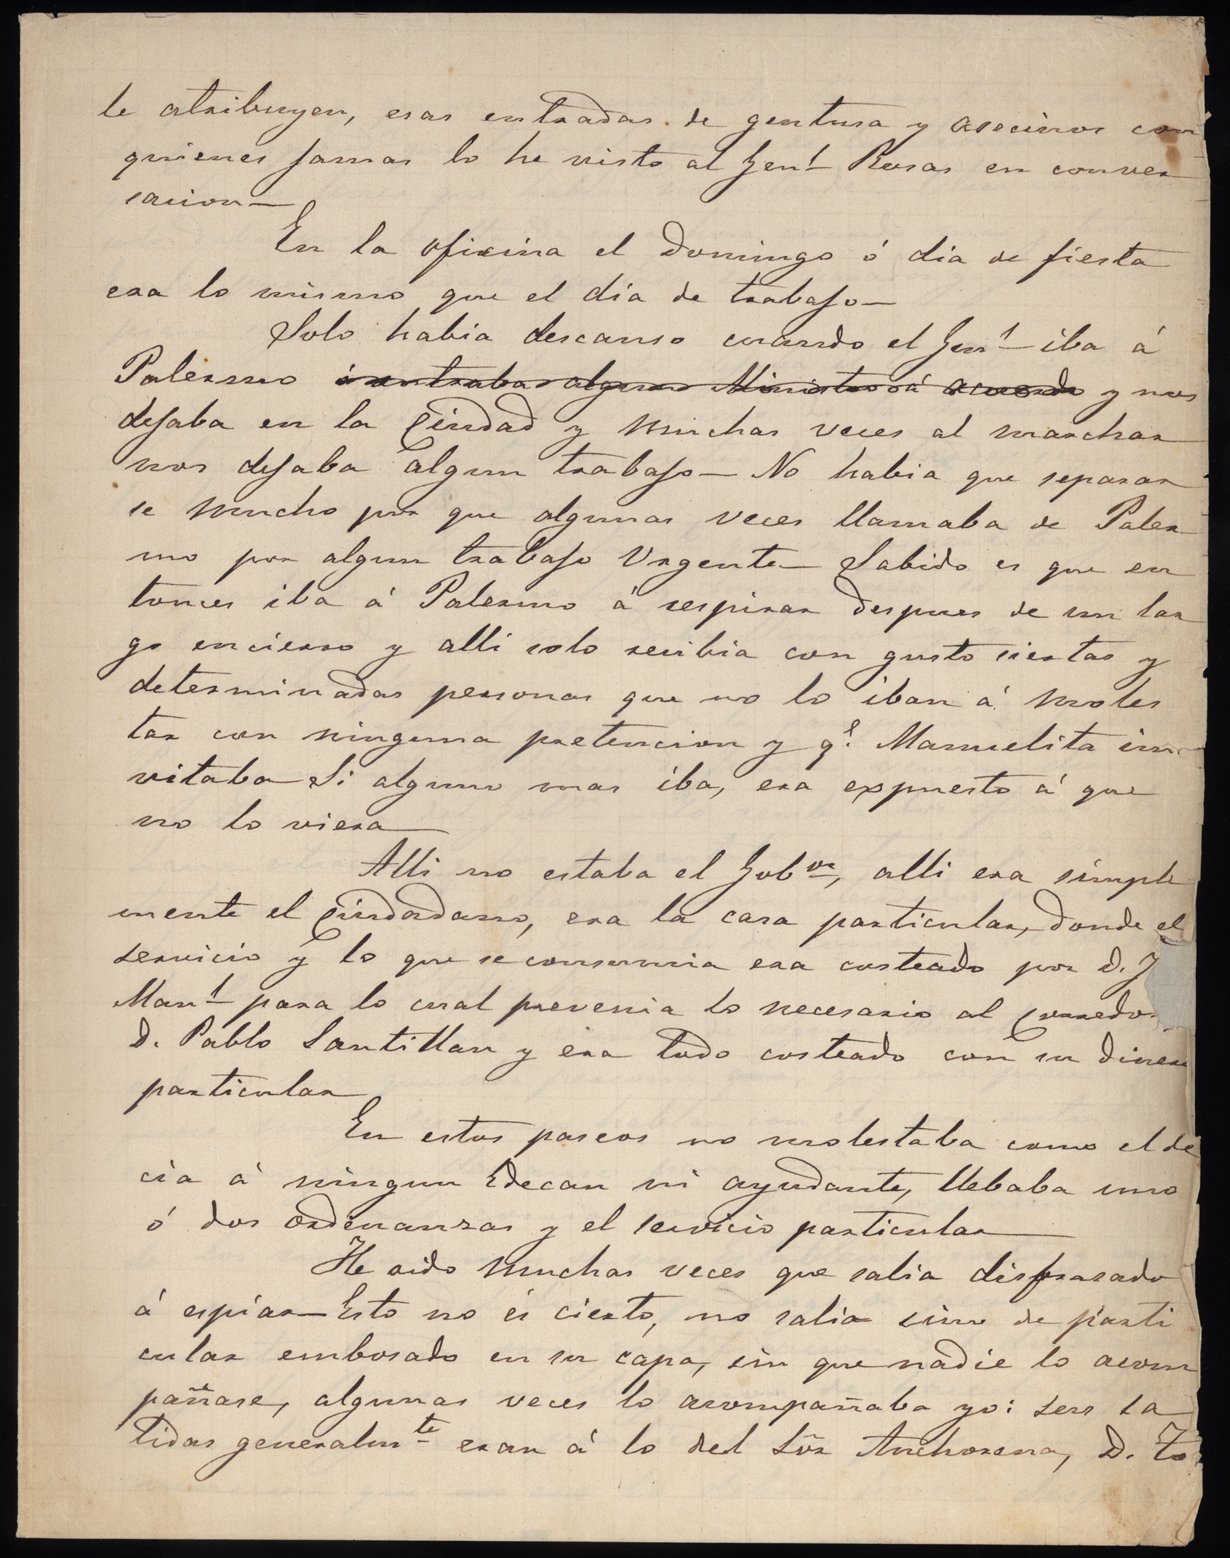 le atribuyen, esas entradas de gentusa y asecinos con
quienes jamas lo he visto al Gen.l Rosas en conver
sacion—
En la oficina el Domingo ó dia de fiesta
era lo mismo que el dia de trabajo—
Solo habia descanso cuando el Gen.l iba á
Palermo ó entraba alguno Ministro á acuerdo y nos
dejaba en la Ciudad y muchas veces al marchar
nos dejaba algun trabajo— No habia que separar
se mucho por que algunas veces llamaba de Paler
mo por algun trabajo Urgente— Sabido es que en
tonces iba á Palermo á respirar despues de un lar
go encierro y alli solo recibia con gusto ciertas y
determinadas personas que no lo iban á moles
tar con ninguna pretencion y q.e Manuelita in
vitaba Si alguno mas iba, era expuesto á que
no lo viera—
Alli no estaba el Gob.or, alli era simple
mente el Ciudadano, era la casa particular, donde el
servicio y lo que se consumia era costeado por D. J
Man.l para lo cual prevenia lo necesario al Corredor
D. Pablo Santillan y era todo costeado con su dinero
particular—
En estos paseos no molestaba como el de
cia á ningun Edecan ni ayudante, llebaba uno
ó dos ordenanzas y el servicio particular—
He oido muchas veces que salia disfrasado
á espiar— Esto no es cierto, no salia sino de parti
cular embosado en su capa, sin que nadie lo acom
pañase, algunas veces lo acompañaba yo: sus sa
lidas generalm.te eran á lo del Sõr Anchorena, D. To